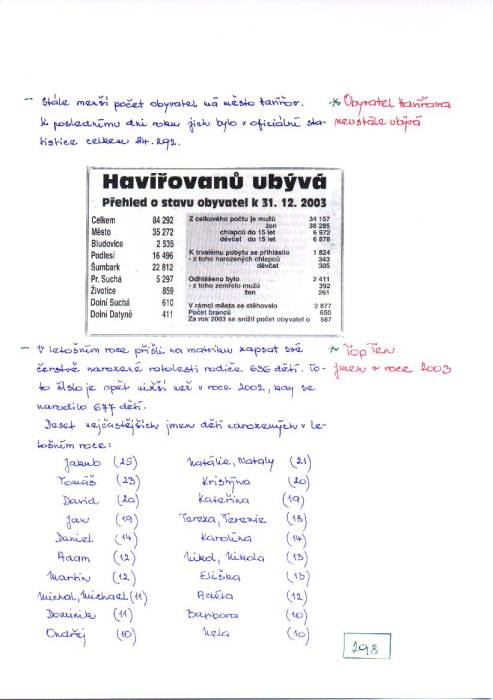 - Stále menší počet obyvatel má město Havířov.
* Obyvatel Havířova
K poslednímu dni roku jich bylo v oficiální sta-
neustále ubývá
tistice celkem 84.292.
Havířovanů ubývá
Přehled o stavu obyvatel k 31. 12. 2003
Celkem 84 292
Město 35 272
Bludovice 2 535
Podlesí 16 496
Šumbark 22 812
Pr. Suchá 5 297
Životice 859
Dolní Suchá 610
Dolní Datyně 411
Z celkového počtu je mužů 34 157
žen 36 285
chlapců do 15 let 6 972
děvčat do 15 let 6 878
K trvalému pobytu se přihlásilo 1 824
- z toho narozených chlapců 343
děvčat 305
Odhlášeno bylo 2 411
- z toho zemřelo mužů 392
žen 261
V rámci města se stěhovalo 2 877
Počet branců 650
Za rok 2003 se snížil počet obyvatel o 587
- V letošním roce přišli na matriku zapsat své
* Top Ten
čerstvě narozené ratolesti rodiče 636 dětí. To-
jmen v roce 2003
to číslo je opět nižší než v roce 2002, kdy se
narodilo 677 dětí.
Deset nejčastějších jmen dětí narozených v le-
tošním roce:
Jakub (25) Natálie, Nataly (21)
Tomáš (23) Kristýna (20)
David (20) Kateřina (19)
Jan (19) Tereza, Terezie (18)
Daniel (14) Karolína (14)
Adam (12) Nikol, Nikola (13)
Martin (12) Eliška (13)
Michal, Michael (11) Adéla (12)
Dominik (11) Barbora (10)
Ondřej (10) Nela (10)
298